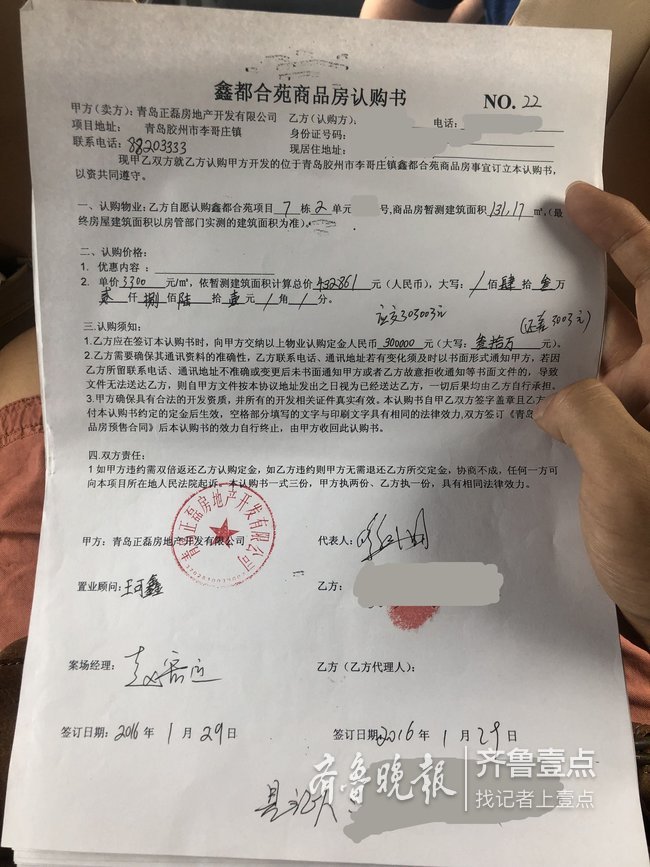 鑫都合苑商品房认购书
NO. 22
甲方（卖方）：青岛正磊房地产开发有限公司 乙方（认购方）： 电话：
项目地址： 青岛胶州市李哥庄镇 身份证号码：
联系电话：88203333 现居住地址：
现甲乙双方就乙方认购甲方开发的位于青岛胶州市李哥庄镇鑫都合苑商品房事宜订立本认购书，
以资共同遵守。
一、认购物业：乙方自愿认购鑫都合苑项目 7 栋 2 单元 号，商品房暂测建筑面积 131.17 ㎡，（最
终房屋建筑面积以房管部门实测的建筑面积为准）。
二、认购价格：
1. 优惠内容：
2. 单价 3300 元/㎡，依暂测建筑面积计算总价 432861 元（人民币），大写：/ 佰 肆 拾 叁 万
贰 仟 捌 佰 陆 拾 壹 元 / 角 / 分。
应交303003元
（还差3003元）
三.认购须知：
1.乙方应在签订本认购书时，向甲方交纳以上物业认购定金人民币 300000 元（大写：叁拾万 元）。
2.乙方需要确保其通讯资料的准确性，乙方联系电话、通讯地址若有变化须及时以书面形式通知甲方，若因
乙方所留联系电话、通讯地址不准确或变更后未书面通知甲方或者乙方故意拒收通知等书面文件的，导致
文件无法送达乙方，则自甲方文件按本协议地址发出之日视为已经送达乙方，一切后果均由乙方自行承担。
3.甲方确保具有合法的开发资质，并所有的开发相关证件真实有效。本认购书自甲乙双方签字盖章且乙方
付本认购书约定的定金后生效，空格部分填写的文字与印刷文字具有相同的法律效力.双方签订《青岛
品房预售合同》后本认购书的效力自行终止，由甲方收回此认购书。
四.双方责任：
1 如甲方违约需双倍返还乙方认购定金，如乙方违约则甲方无需退还乙方所交定金，协商不成，任何一方可
向本项目所在地人民法院起诉。本认购书一式三份，甲方执两份、乙方执一份，具有相同法律效力。
青岛正磊房地产开发有限公司
甲方：青岛正磊房地产开发有限公司 代表人：
置业顾问：王可鑫 乙方：
案场经理： 乙方（乙方代理人）：
签订日期：2016 年 1 月 29 日 签订日期：2016 年 1 月 29 日
齐鲁晚报 齐鲁壹点
找记者上壹点